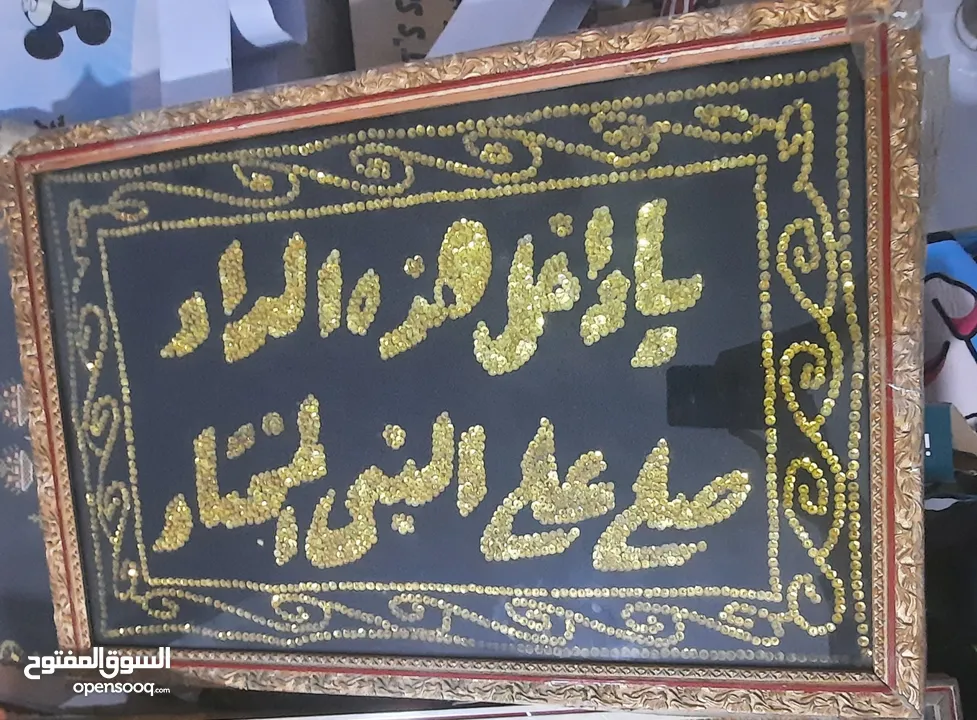 يا داخل هذه الدار
صلي على النبي المختار
السوق المفتوح
opensooq.com